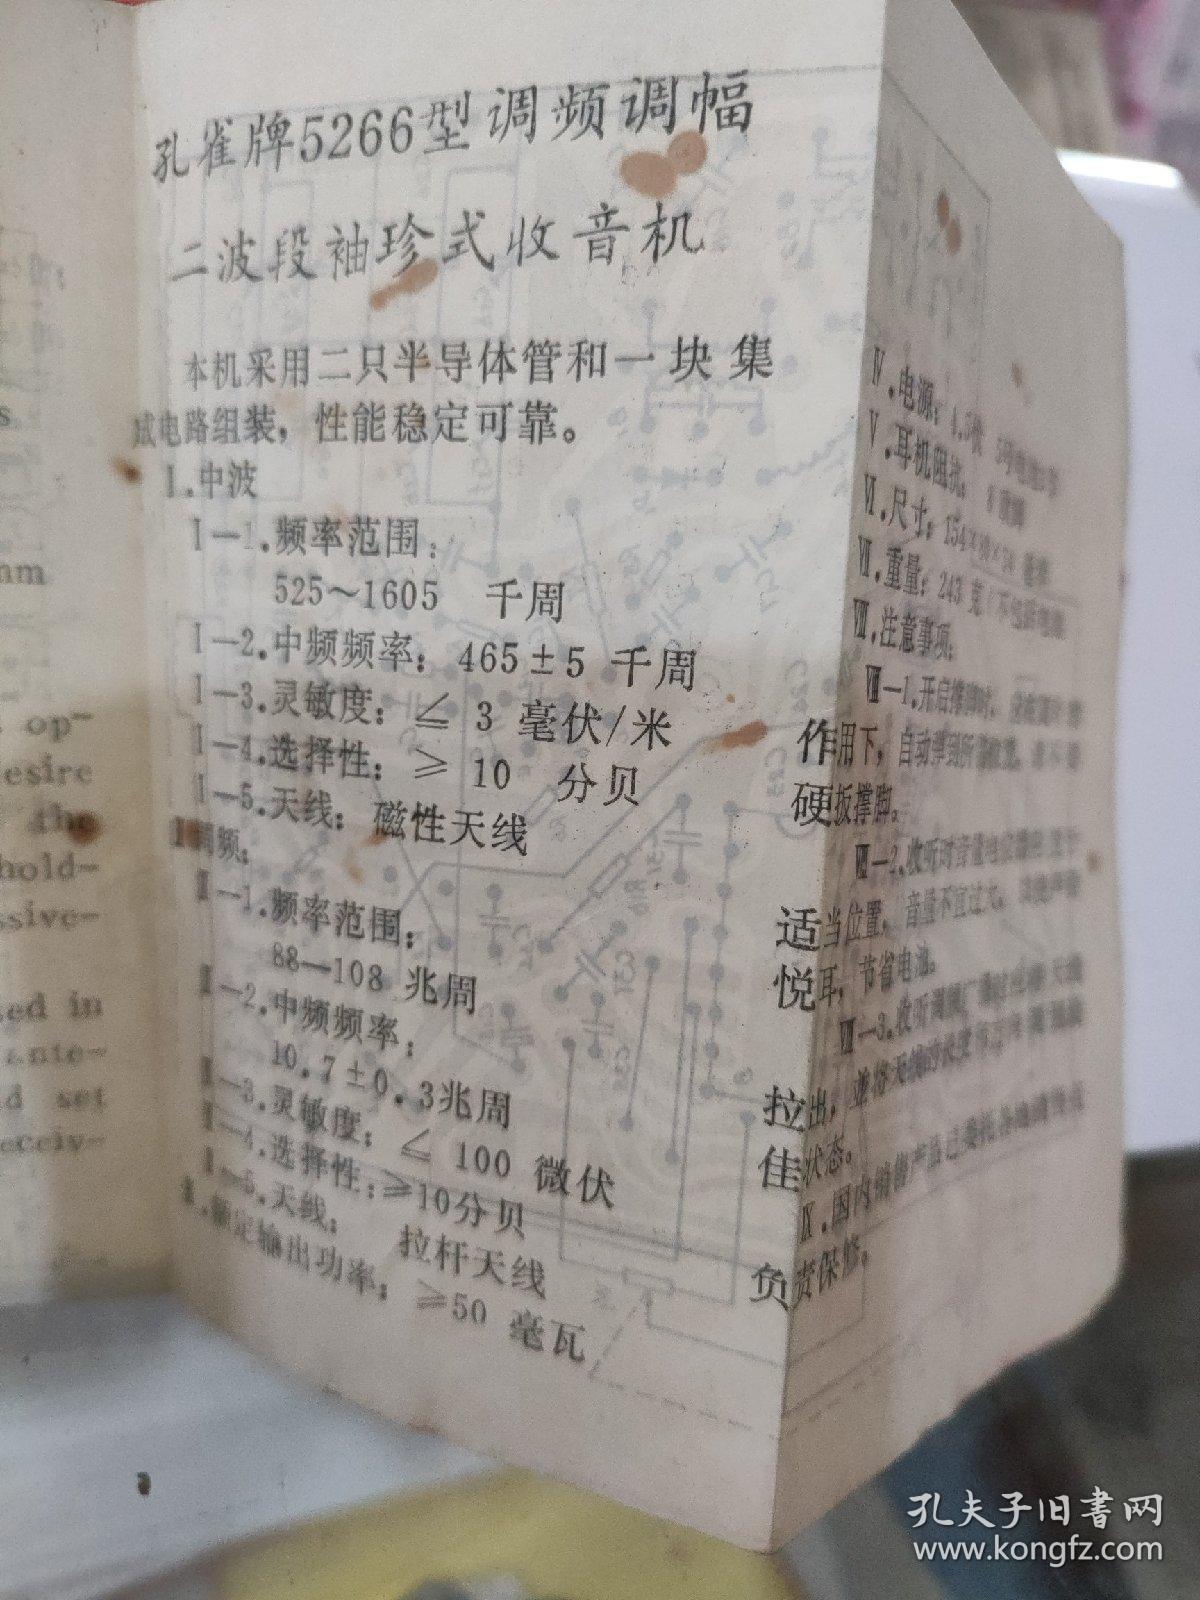 孔雀牌5266型调频调幅
二波段袖珍式收音机
本机采用二只半导体管和一块集
成电路组装，性能稳定可靠。
Ⅰ.中波
Ⅰ—1.频率范围：
525～1605 千周
Ⅰ—2.中频频率：465±5 千周
Ⅰ—3.灵敏度：≤ 3 毫伏/米
Ⅰ—4.选择性：≥ 10 分贝
Ⅰ—5.天线：磁性天线
Ⅱ调频：
Ⅱ—1.频率范围：
88—108 兆周
Ⅱ—2.中频频率：
10.7±0.3兆周
Ⅱ—3.灵敏度：≤ 100 微伏
Ⅱ—4.选择性：≥10分贝
Ⅱ—5.天线： 拉杆天线
Ⅲ.额定输出功率：≥50 毫瓦
Ⅳ.电源：4.5伏
Ⅴ.耳机阻抗：8
Ⅵ.尺寸：154
Ⅶ.重量：243 克（不包括电池
Ⅷ.注意事项：
Ⅷ—1.开启撑脚时，
作用下，自动弹到所需位置，
硬扳撑脚。
Ⅷ—2.收听时音量电位器
适当位置，音量不宜过大，
悦耳，节省电池。
Ⅷ—3.收听调频广播 天线
拉出，并将天线的长度
佳状态。
Ⅸ.国内销售产品已委托各地
负责保修。
nm
op-
esire
the
hold-
ssive-
ed in
ante-
d set
eceiv-
孔夫子旧书网
www.kongfz.com